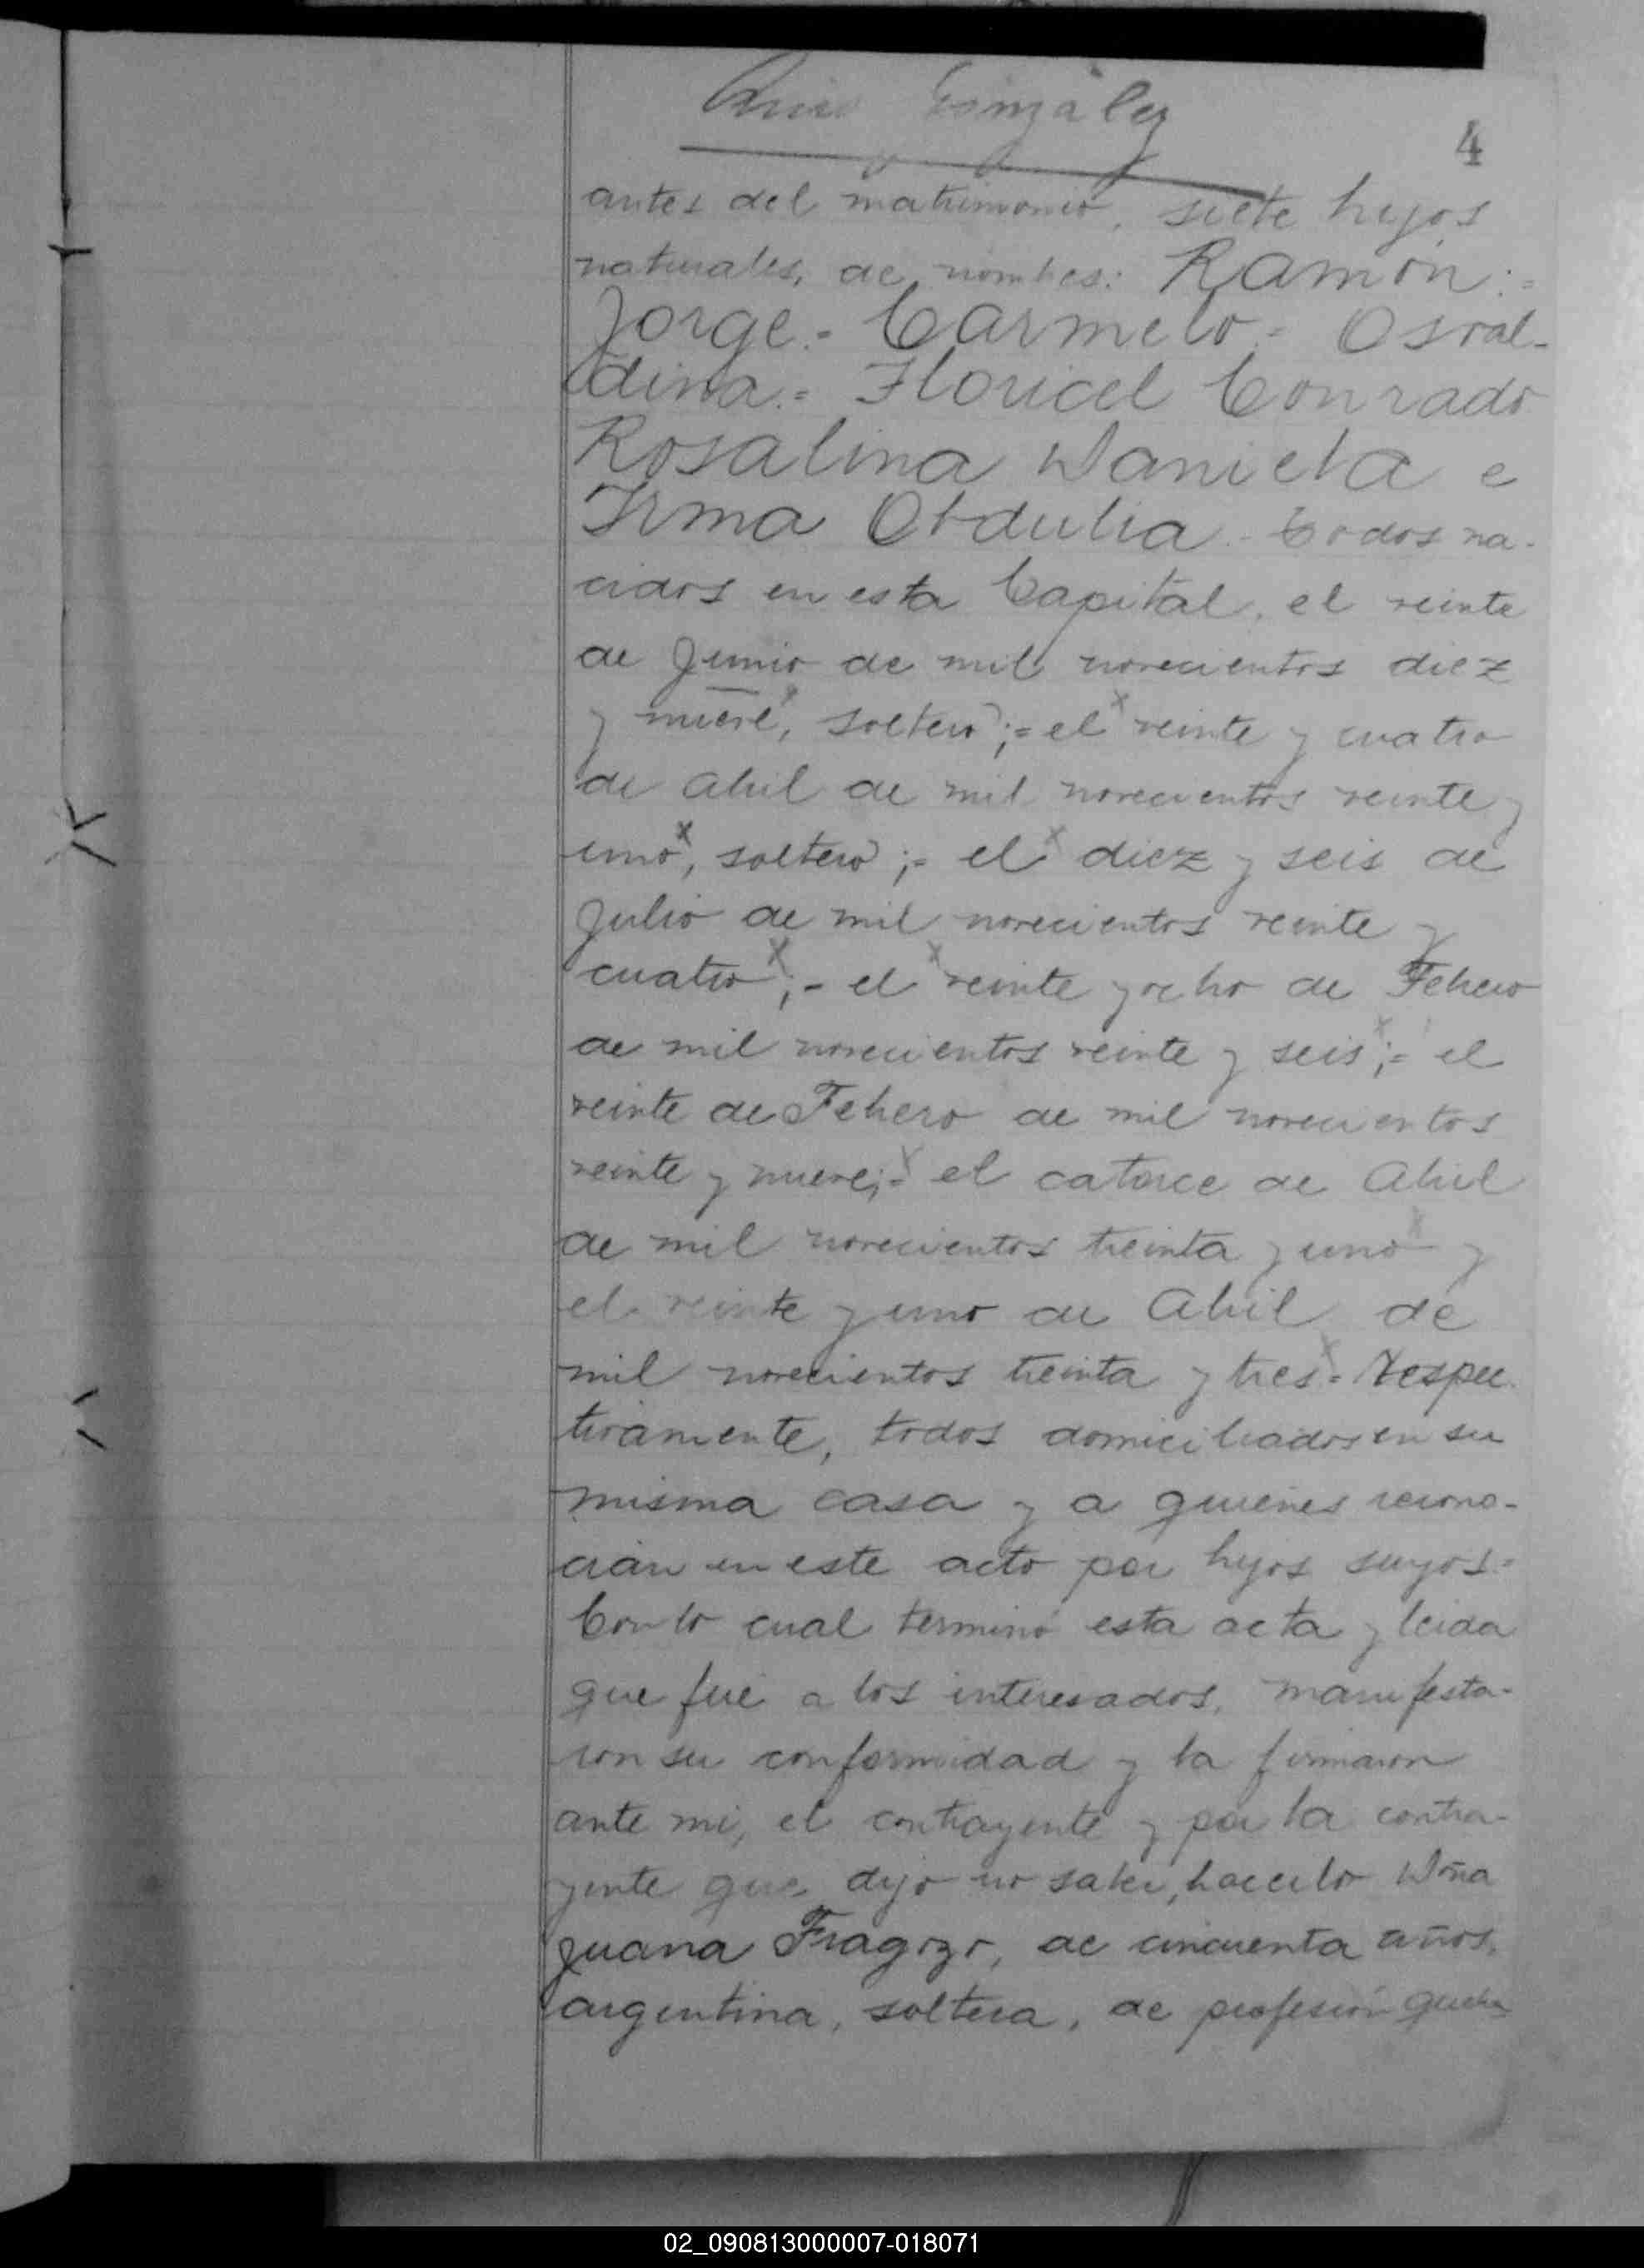 Luis González
4
antes del matrimonio, siete hijos
naturales, de nombres: Ramón:=
Jorge.= Carmelo = Osval-
dina.= Floricel Conrado
Rosalina Daniela e
Irma Obdulia.- todos na-
cidos en esta Capital, el veinte
de Junio de mil novecientos diez
y nueve, soltero;= el veinte y cuatro
de Abril de mil novecientos veinte y
uno, soltero;= el diez y seis de
Julio de mil novecientos veinte y
cuatro;- el veinte y ocho de Febrero
de mil novecientos veinte y seis;= el
veinte de Febrero de mil novecientos
veinte y nueve;= el catorce de Abril
de mil novecientos treinta y uno y
el veinte y uno de Abril de
mil novecientos treinta y tres = respec-
tivamente, todos domiciliados en su
misma casa y a quienes recono-
cian en este acto por hijos suyos.=
Con lo cual terminó esta acta y leida
que fué a los interesados, manifesta-
ron su conformidad y la firmaron
ante mi, el contrayente y por la contra-
yente que dijo no saber hacerlo Doña
Juana Fragozo, de cincuenta años,
argentina, soltera, de profesión queha
02_090813000007-018071